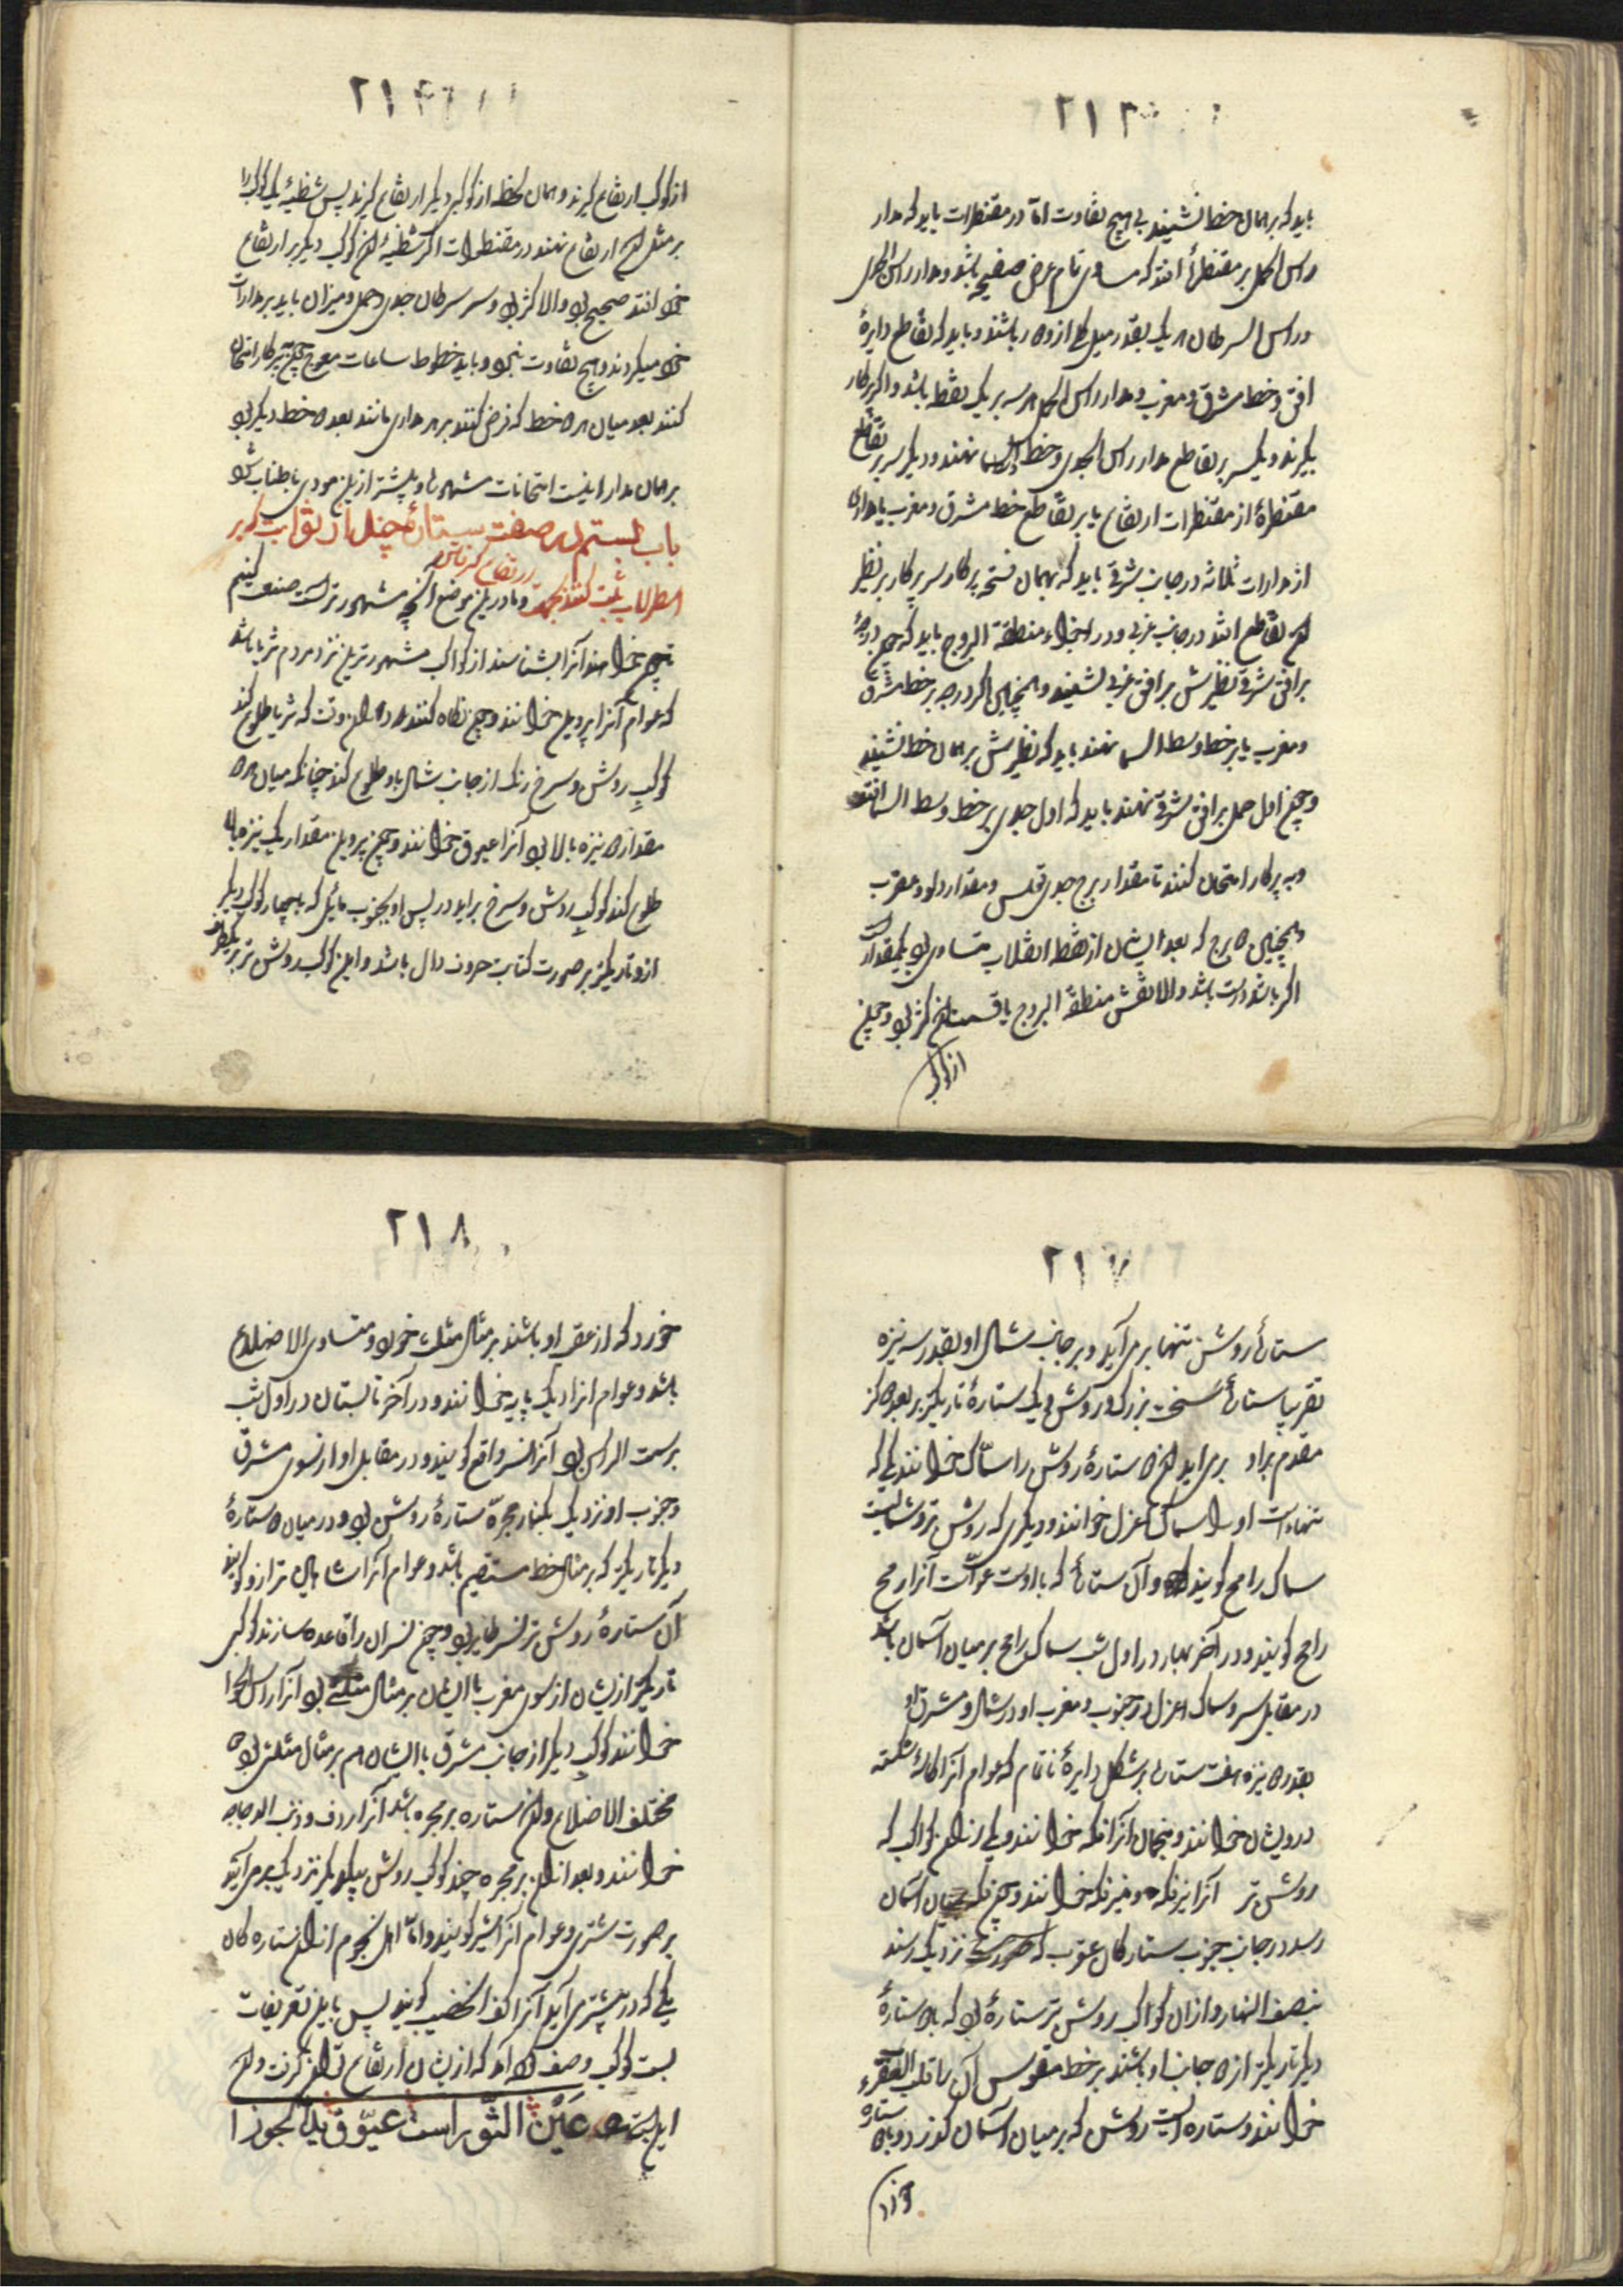 ٢١٣
باید که بر همان خط نشیند بی هیچ تفاوت اما در مقنطرات باید که مدار
راس الحمل بر مقنطرهٔ افتد که مساوی تمام عرض صفیحه باشد و مدار راس الجدی
و راس السرطان هر یک بقدر میل کلی ازو دور باشند و باید که تقاطع دایرهٔ
افق و خط مشرق و مغرب و مدار راس الحمل هر سه بر یک نقطه باشد و اگر پرکار
بگیرند و یکسر بر تقاطع مدار راس الجدی و خط وسط السما نهند و دیگر سر بر تقاطع
مقنطرهٔ از مقنطرات ارتفاع یا بر تقاطع خط مشرق و مغرب با مداری
از مدارات ثلاثه در جانب شرقی باید که بهمان فتحه پرکار سر پرکار بر نظیر
آن تقاطع افتد در جانب غربی و در اجزاء منطقة البروج باید که چون درجهٔ
بر افق شرقی نظیرش بر افق غربی نشیند و همچنان اگر درجه بر خط مشرق
و مغرب یا بر خط وسط السما نهند باید که نظیرش بر همان خط نشیند
و چون اول حمل بر افق شرقی نهند باید که اول جدی بر خط وسط السما افتد
و به پرکار امتحان کنند تا مقدار برج جدی و قوس و مقدار دلو و عقرب
و همچنین دو برج که بعد ایشان از نقطه انقلاب متساوی بود یکمقدار است
اگر باشد راست باشد والا نقش منطقة البروج یا قسمت آن کژ بود و چون
از کوکب
٢١۴
از کوکب ارتفاع گیرند و همان لحظه از کوکبی دیگر ارتفاع گیرند پس شظیهٔ یک کوکب را
بر مثل آن ارتفاع نهند در مقنطرات اگر شظیهٔ آن کوکب دیگر بر ارتفاع
خود افتد صحیح بود والا کژ بود و سر سرطان جدی و حمل و میزان باید بر مدارات
خود میگردند و هیچ تفاوت نبود و باید خطوط ساعات معوج چون پرکار امتحان
کنند بعد میان هر دو خط که فرض کنند بر هر مداری مانند بعد دو خط دیگر بود
بر همان مدار اینست امتحانات مشهور و بیشتر ازین مودی باطناب شود
باب بیستم در صفت ستارهٔ چند از ثوابت که بر
اسطرلاب ثبت کنند بجهت ارتفاع گرفتن و ما درین موضع آنچه مشهورتر است صفت کنیم
تا چون خواهند آنرا بشناسند از کواکب مشهورترین نزد مردم ثریا باشد
که عوام آنرا پروین خوانند و چون نگاه کنند در آن وقت که ثریا طلوع کند
کوکبِ روشن و سرخ رنگ از جانب شمال با او طلوع کند چنانکه میان هر دو
مقدار دو نیزه بالا بود آنرا عیوق خوانند و چون پروین مقدار یک نیزه بالا
طلوع کند کوکبِ روشن و سرخ براید در پس او بجنوب مائل که با چهار کوکب دیگر
ازو تاریکتر بر صورت کتابت حرف دال باشد و این کوکب روشن تر بر یکطرف
٢١٧
ستارهٔ روشن تنها برمی آید و بر جانب شمال او بقدر سه نیزه
تقریبا ستارهٔ سخت بزرگ و روشن و یک ستارهٔ تاریکتر بر بعد دو گز
مقدم بر او برمی اید این دو ستارهٔ روشن را سماک خوانند یکی که
تنهاست او را سماک اعزل خوانند و دیگری که روشن تر و شمالیست
سماک رامح گویند و آن ستارهٔ که با اوست عوّاست آنرا رمح
رامح گویند و در آخر بهار در اول شب سماک رامح بر میان آسمان باشد
در مقابل سر و سماک اعزل در جنوب و مغرب او در شمال و مشرق او
بقدر دو نیزه هفت ستاره بر شکل دایرهٔ ناتمام که عوام آنرا کاسهٔ شکسته
درویشان خوانند و منجمان آنرا فکه خوانند و یکی از آن کواکب که
روشن تر آنرا نیر فکه و منیر فکه خوانند و چون فکه بمیان آسمان
رسد در جانب جنوب ستارگان عقرب که نزدیک رسند
بنصف النهار و از آن کواکب روشن تر ستارهٔ بود که با دو ستارهٔ
دیگر تاریکتر از دو جانب او باشند بر خط مقوس آن را قلب العقرب
خوانند و ستاره ایست روشن که بر میان آسمان گذرد و با دو ستاره
خورد
٢١٨
خورد که از عقب او باشند بر مثال مثلث خورد و متساوی الاضلاع
باشد و عوام انرا دیک پایه خوانند و در آخر تابستان در اول شب
بر سمت الراس بود آنرا نسر واقع گویند و در مقابل او از سوی مشرق
و جنوب او نزدیک بکنار مجره ستارهٔ روشن بود و در میان دو ستارهٔ
دیگر تاریکتر که بر مثال خط مستقیم باشد و عوام آنرا شاهین ترازو گویند
آن ستارهٔ روشن تر نسر طایر بود و چون نسران را قاعده سازند کوکبی
تاریکتر ازیشان از سوی مغرب با ایشان بر مثال مثلثی بود آنرا راس الحوا
خوانند و کوکبِ دیگر از جانب مشرق با ایشان هم بر مثال مثلثی بود
مختلف الاضلاع و این ستاره بر مجره باشد آنرا ردف و ذنب الدجاجه
خوانند و بعد از آن بر مجره چند کوکب روشن بیکدیگر نزدیک برمی آید
بر صورت شتری و عوام آنرا شتر گویند و اما اهل نجوم از آن ستارگان
یکی که در پیشتری آید آنرا کف الخضیب گویند پس باین تعریفات
بیست کوکب وصف کرده آمد که ازیشان ارتفاع توان گرفت و آن
این است عَیْنُ الثَّور است عیّوق ید الجوزا